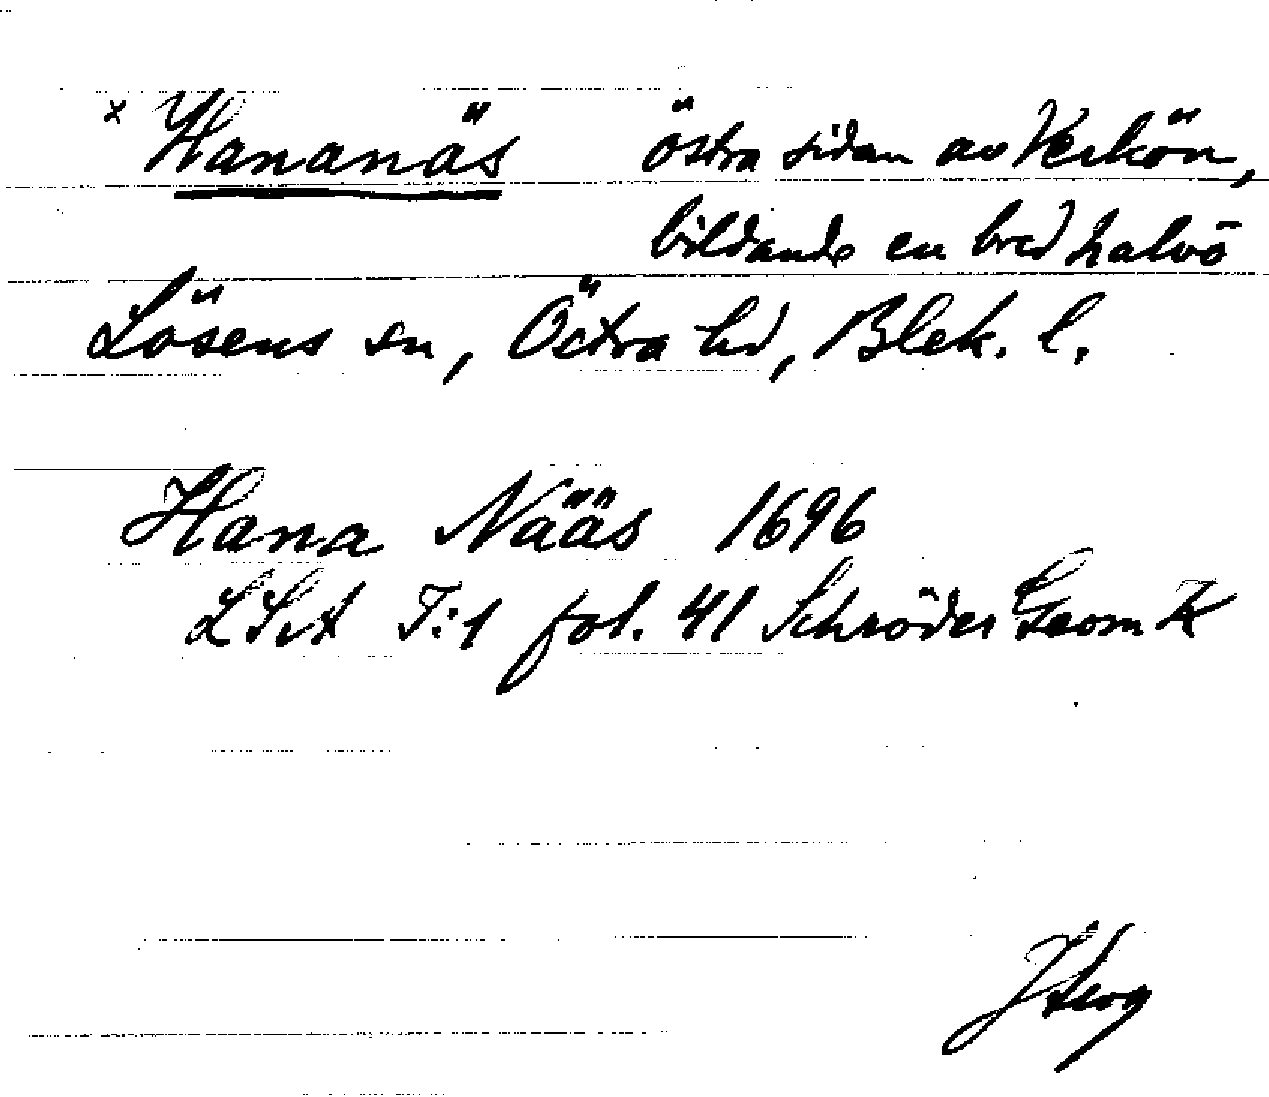 x Hananäs östra sidan av Verkön,
bildande en bred halvö
Lösens sn, Östra hd, Blek. l.
Hana Nääs 1696
LSA I:1 fol. 41 Schröder Geom K